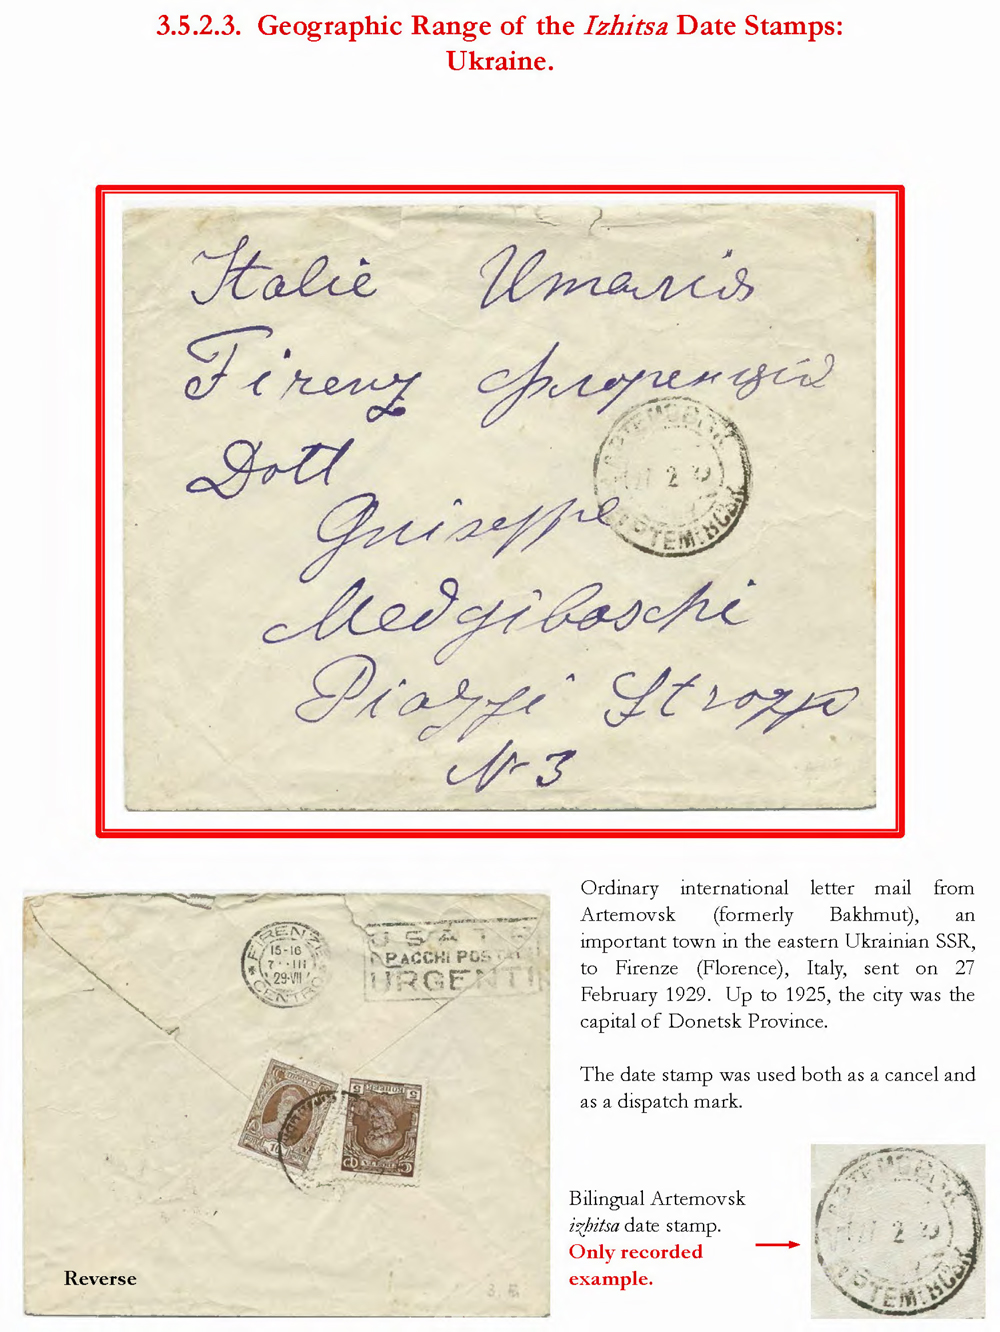 3.5.2.3. Geographic Range of the Izhitsa Date Stamps:
Ukraine.
Italie Италія
Firenz Флоренція
Dott
Guiseppe
Medgiboschi
Piazzi Strozp
№ 3
2 29
FIRENZE
15-16
7 · III
29·VII
CENTRO
USATE
PACCHI POSTALI
URGENTI
Reverse
Ordinary international letter mail from
Artemovsk (formerly Bakhmut), an
important town in the eastern Ukrainian SSR,
to Firenze (Florence), Italy, sent on 27
February 1929. Up to 1925, the city was the
capital of Donetsk Province.
The date stamp was used both as a cancel and
as a dispatch mark.
Bilingual Artemovsk
izhitsa date stamp.
Only recorded
example.